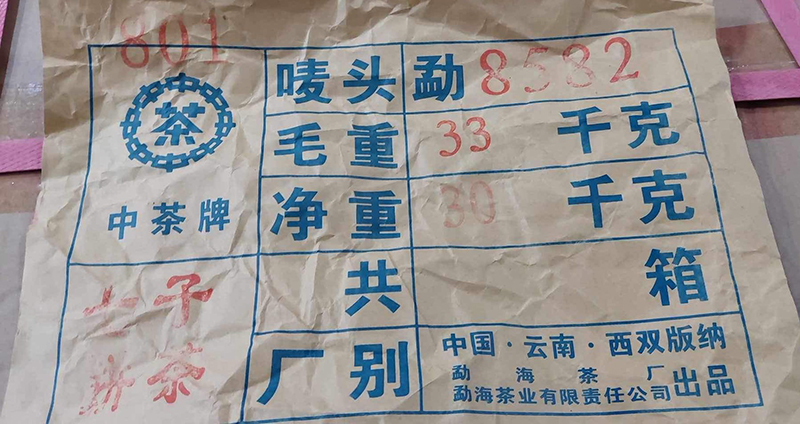 801
茶
中茶牌
唛头 勐 8582
毛重 33 千克
净重 30 千克
共 箱
七子
饼茶
厂别
中国·云南·西双版纳
勐海茶厂
勐海茶业有限责任公司 出品